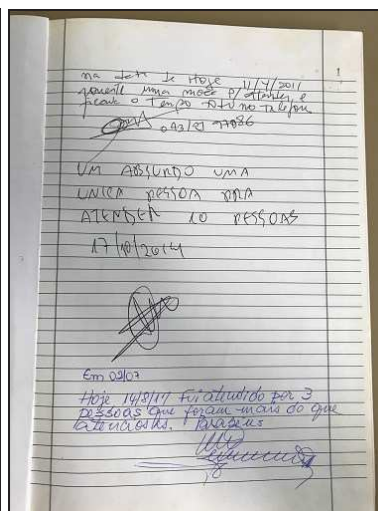 1
na data de Hoje 11/4/2011
somente uma moça p/ Atender, e
ficava o Tempo todo no Telefone
UM ABSURDO UMA
UNICA PESSOA PRA
ATENDER 10 PESSOAS
17/10/2014
Em 02/07
Hoje 14/8/17 Fui atendido por 3
pessoas que foram mais do que
atenciosas. Parabéns